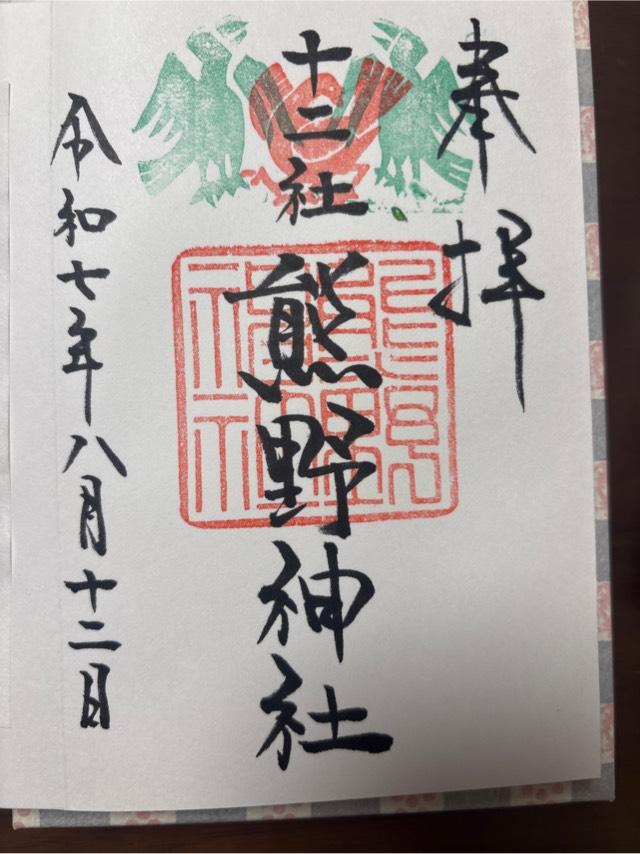 奉拝
十二社
熊野神社
令和七年八月十二日